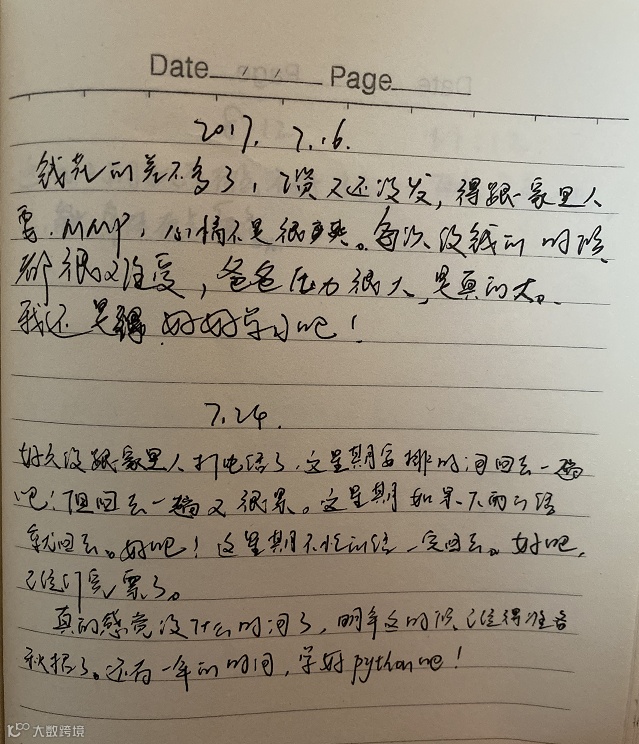 Date / / Page
2017. 7.16.
钱花的差不多了，工资又还没发，得跟家里人
要. MMP，心情不是很爽。每次没钱的时候
都很难受，爸爸压力很大，是真的大。
我还是得好好学习吧！
7.24.
好久没跟家里人打电话了，这星期安排时间回去一趟
吧！但回去一趟又很累。这星期如果不下雨的话
就回去。好吧！这星期不忙的话一定回去。好吧，
已经订完票了。
真的感觉没什么时间了，明年这时候已经得准备
秋招了。还有一年的时间，学好python吧！
大数跨境